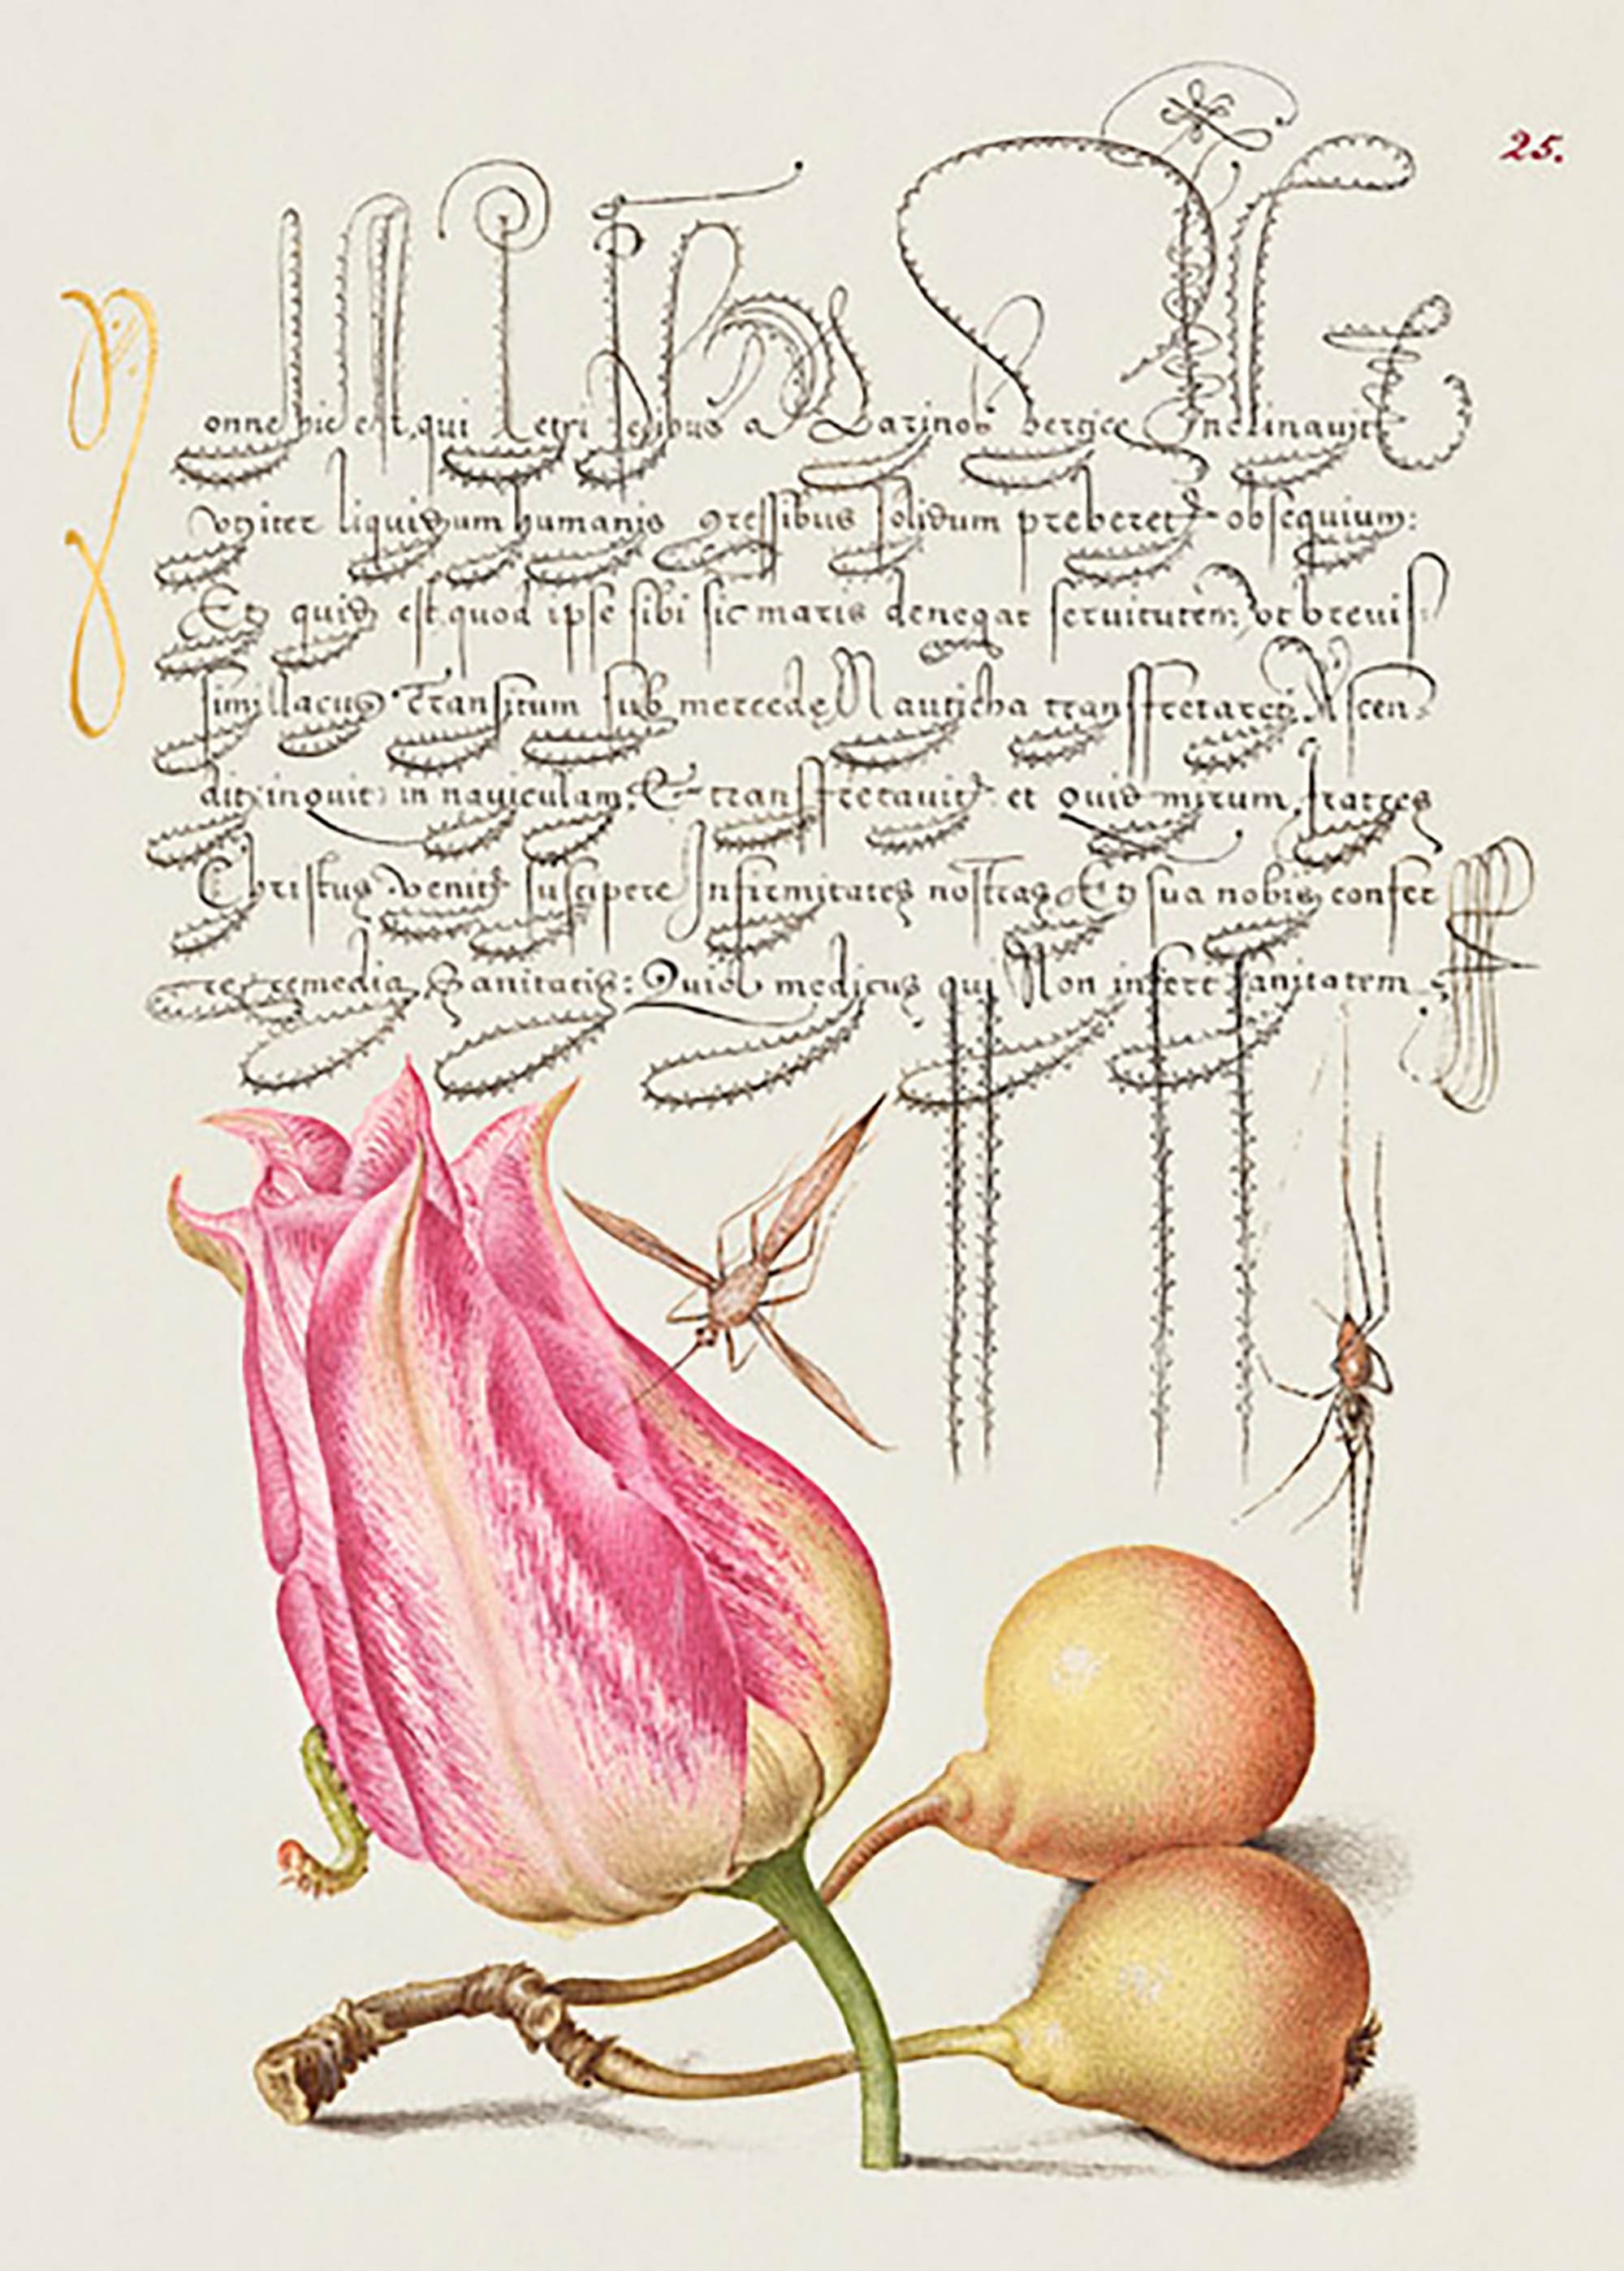 25.
Nonne hic est, qui Petri pedibus a Marinos Vertice Inclinavit Et
vniter liquidum humanis gressibus solidum preberet obsequium:
Et quid est quod ipse sibi sic maris denegat seruitutem, vt breuis
simi lacus Transitum sub mercede Nauticha transfretaret, Ascen
dit, inquit, in nauiculam, Et transfretauit: et Quid mirum, fratres
Christus venit suscipere Infirmitates nostras, Et sua nobis confer
re remedia Sanitatis: Quia medicus qui Non infert sanitatem